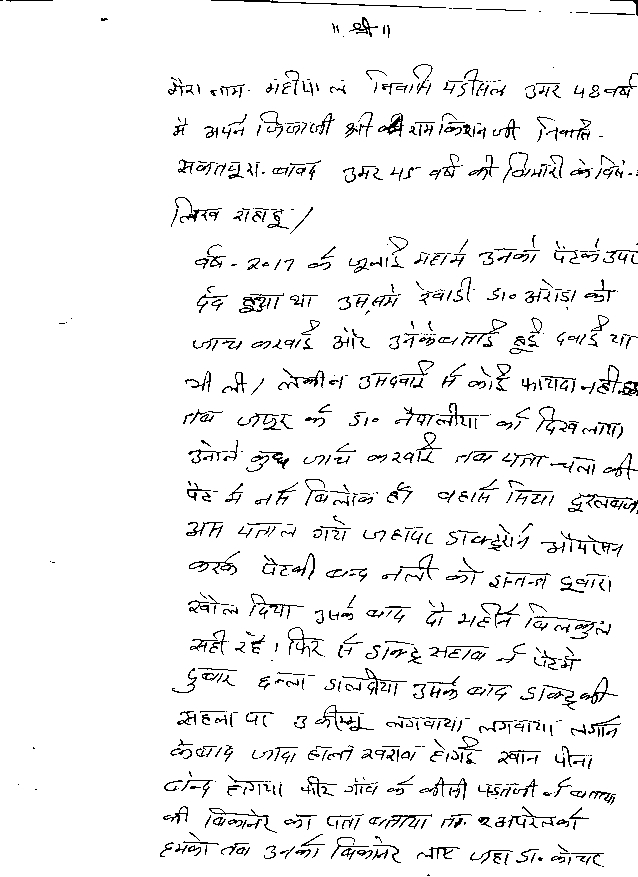 ॥ श्री ॥
मेरा नाम - महीपाल निवासि उमर 48 वर्ष
मै अपने जिजाजी श्री रामकिशन जी निवासि -
सकतपुरा - बावद उमर 45 वर्ष की बिमारी के विषे -
लिख राहाहु /
वर्ष - 2017 के जूलाई महामे उनको पैटके उपर
दर्द हुआ था उससमे रेवाडी डा॰ अरोडा को
जाच करवाई और उनेकेबताई हुई दवाई या
भी ली / लेकीन उसदवाई से कोई फायदा नही
तब जपूर के डा॰ नेपालीया को दिखलाया
उनोने कुछ जाचे करवाई तब पता चला की
पैट मे नस बिलोक है। वहासे
असपताल गये जहापर डाक्ट्रोने ओपरेसन
करके पैटकी बन्द नली को दूवारा
खोल दिया उसके बाद दो महीने बिलकुल
सही रहे ! फिर से डाक्ट्र सहाब ने पैटमे
दुबार छल्ला डालदीया उसके बाद डाक्ट्र की
सहला पर उ कीम्मू लगवाया लगवाया लगाने
केबाद जादा हालत खराब होगई खाना पीना
बन्द होगया फीर गाँव के कीसी पडतजी ने बताया
की बिकानेर का पता बताया
हमको तब उनको बिकानेर लाए जहा डा॰ कोचर